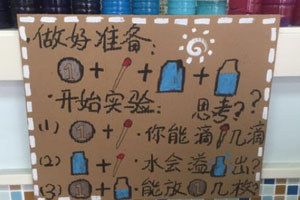 做好准备:
1 + + +
开始实验: 思考??
(1) + 你能滴几滴
(2) + 水会溢出?
(3) 1 + 能放1几枚?